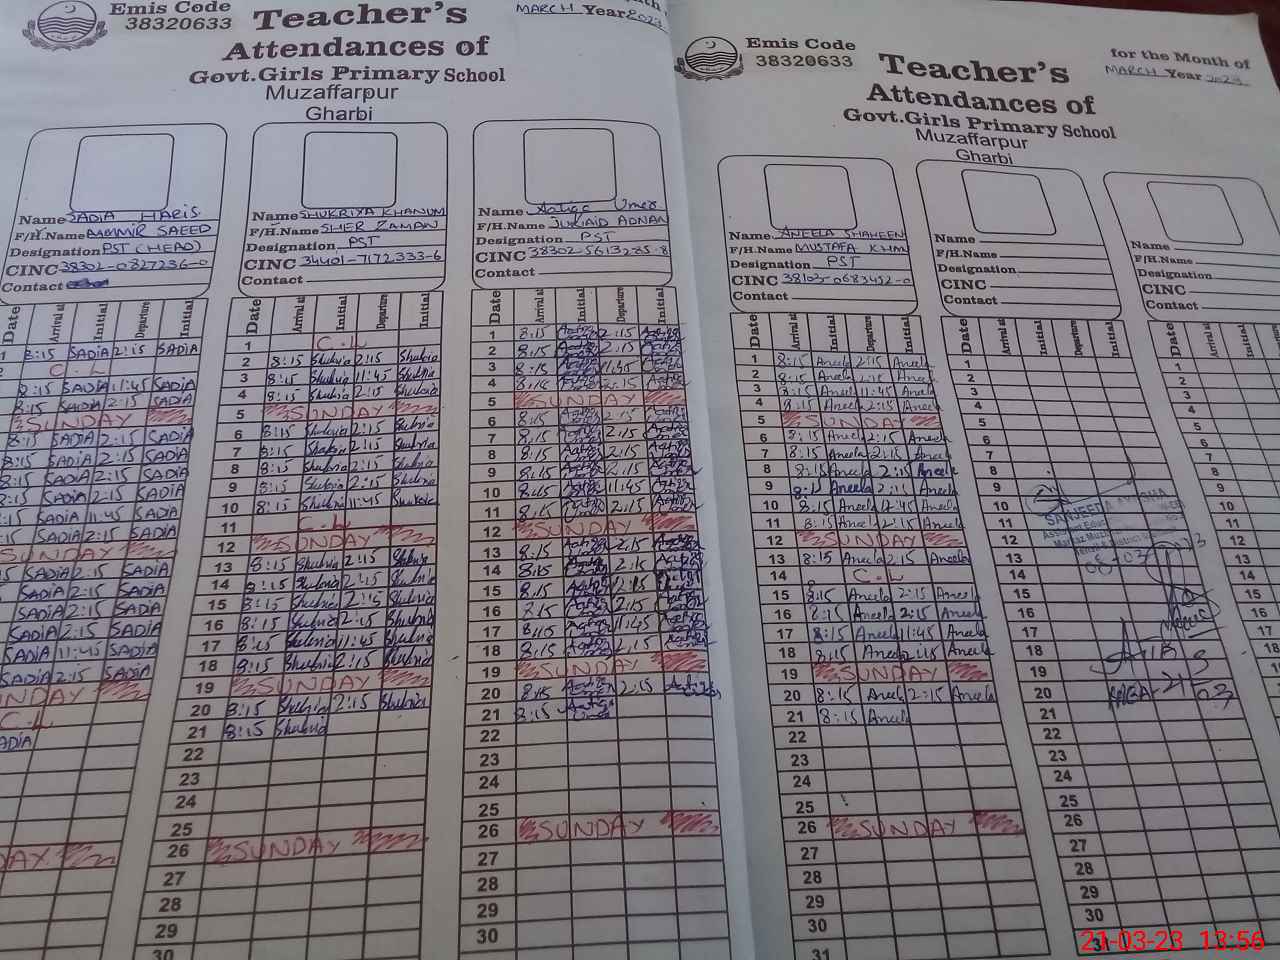 Emis Code
38320633
Teacher's
Attendances of
Govt.Girls Primary School
Muzaffarpur
Gharbi
MARCH Year 2023
Name SADIA HARIS
F/H.Name AAMMIR SAEED
Designation PST (HEAD)
CINC 38302-0827236-0
Contact
Name SHUKRIYA KHANUM
F/H.Name SHER ZAMAN
Designation PST
CINC 34401-7172333-6
Contact
Name Aatiqa Umer
F/H.Name JUNAID ADNAN
Designation PST
CINC 38302-5613285-8
Contact
Date Arrival at Initial Departure Initial
1 8:15 SADIA 2:15 SADIA
C.L
8:15 SADIA 11:45 SADIA
8:15 SADIA 2:15 SADIA
SUNDAY
8:15 SADIA 2:15 SADIA
8:15 SADIA 2:15 SADIA
8:15 SADIA 2:15 SADIA
8:15 SADIA 2:15 SADIA
SADIA 11:45 SADIA
SADIA 2:15 SADIA
SUNDAY
SADIA 2:15 SADIA
SADIA 2:15 SADIA
SADIA 2:15 SADIA
SADIA 2:15 SADIA
SADIA 11:45 SADIA
SADIA 2:15 SADIA
SUNDAY
C.L
SADIA
Date Arrival at Initial Departure Initial
1 C.L
2 8:15 Shukria 2:15 Shukria
3 8:15 Shukria 11:45 Shukria
4 8:15 Shukria 2:15 Shukria
5 SUNDAY
6 8:15 Shukria 2:15 Shukria
7 8:15 Shukria 2:15 Shukria
8 8:15 Shukria 2:15 Shukria
9 8:15 Shukria 2:15 Shukria
10 8:15 Shukria 11:45 Shukria
11 C.L
12 SUNDAY
13 8:15 Shukria 2:15 Shukria
14 8:15 Shukria 2:15 Shukria
15 8:15 Shukria 2:15 Shukria
16 8:15 Shukria 2:15 Shukria
17 8:15 Shukria 11:45 Shukria
18 8:15 Shukria 2:15 Shukria
19 SUNDAY
20 8:15 Shukria 2:15 Shukria
21 8:15 Shukria
22
23
24
25
26 SUNDAY
27
28
29
30
Date Arrival at Initial Departure Initial
1 8:15 Aatiqa 2:15 Aatiqa
2 8:15 Aatiqa 2:15 Aatiqa
3 8:15 Aatiqa 11:45 Aatiqa
4 8:15 Aatiqa 2:15 Aatiqa
5 SUNDAY
6 8:15 Aatiqa 2:15 Aatiqa
7 8:15 Aatiqa 2:15 Aatiqa
8 8:15 Aatiqa 2:15 Aatiqa
9 8:15 Aatiqa 2:15 Aatiqa
10 8:15 Aatiqa 11:45 Aatiqa
11 8:15 Aatiqa 2:15 Aatiqa
12 SUNDAY
13 8:15 Aatiqa 2:15 Aatiqa
14 8:15 Aatiqa 2:15 Aatiqa
15 8:15 Aatiqa 2:15 Aatiqa
16 Aatiqa 2:15 Aatiqa
17 8:15 Aatiqa 11:45 Aatiqa
18 8:15 Aatiqa 2:15 Aatiqa
19 SUNDAY
20 8:15 Aatiqa 2:15 Aatiqa
21 8:15 Aatiqa
22
23
24
25
26 SUNDAY
27
28
29
30
Emis Code
38320633
Teacher's
Attendances of
Govt.Girls Primary School
Muzaffarpur
Gharbi
for the Month of
MARCH Year 2023
Name ANEELA SHAHEEN
F/H.Name MUSTAFA KHAN
Designation PST
CINC 38103-0683452-0
Contact
Name
F/H.Name
Designation
CINC
Contact
Name
F/H.Name
Designation
CINC
Contact
Date Arrival at Initial Departure Initial
1 8:15 Aneela 2:15 Aneela
2 8:15 Aneela 2:15 Aneela
3 8:15 Aneela 11:45 Aneela
4 8:15 Aneela 2:15 Aneela
5 SUNDAY
6 8:15 Aneela 2:15 Aneela
7 8:15 Aneela 2:15 Aneela
8 8:15 Aneela 2:15 Aneela
9 8:15 Aneela 2:15 Aneela
10 8:15 Aneela Aneela
11 8:15 Aneela 2:15 Aneela
12 SUNDAY
13 8:15 Aneela 2:15 Aneela
14 C.L
15 8:15 Aneela 2:15 Aneela
16 8:15 Aneela 2:15 Aneela
17 8:15 Aneela 11:45 Aneela
18 8:15 Aneela 2:15 Aneela
19 SUNDAY
20 8:15 Aneela 2:15 Aneela
21 8:15 Aneela
22
23
24
25
26 SUNDAY
27
28
29
30
31
Date Arrival at Initial Departure Initial
1
2
3
4
5
6
7
8
9
10
11
12
13
14
15
16
17
18
19
20
21
22
23
24
25
26
27
28
29
30
31
SANJEEDA AYESHA
Date Arrival at Initial
1
2
3
4
5
6
7
8
9
10
11
12
13
14
15
16
17
18
21-03-23 13:56